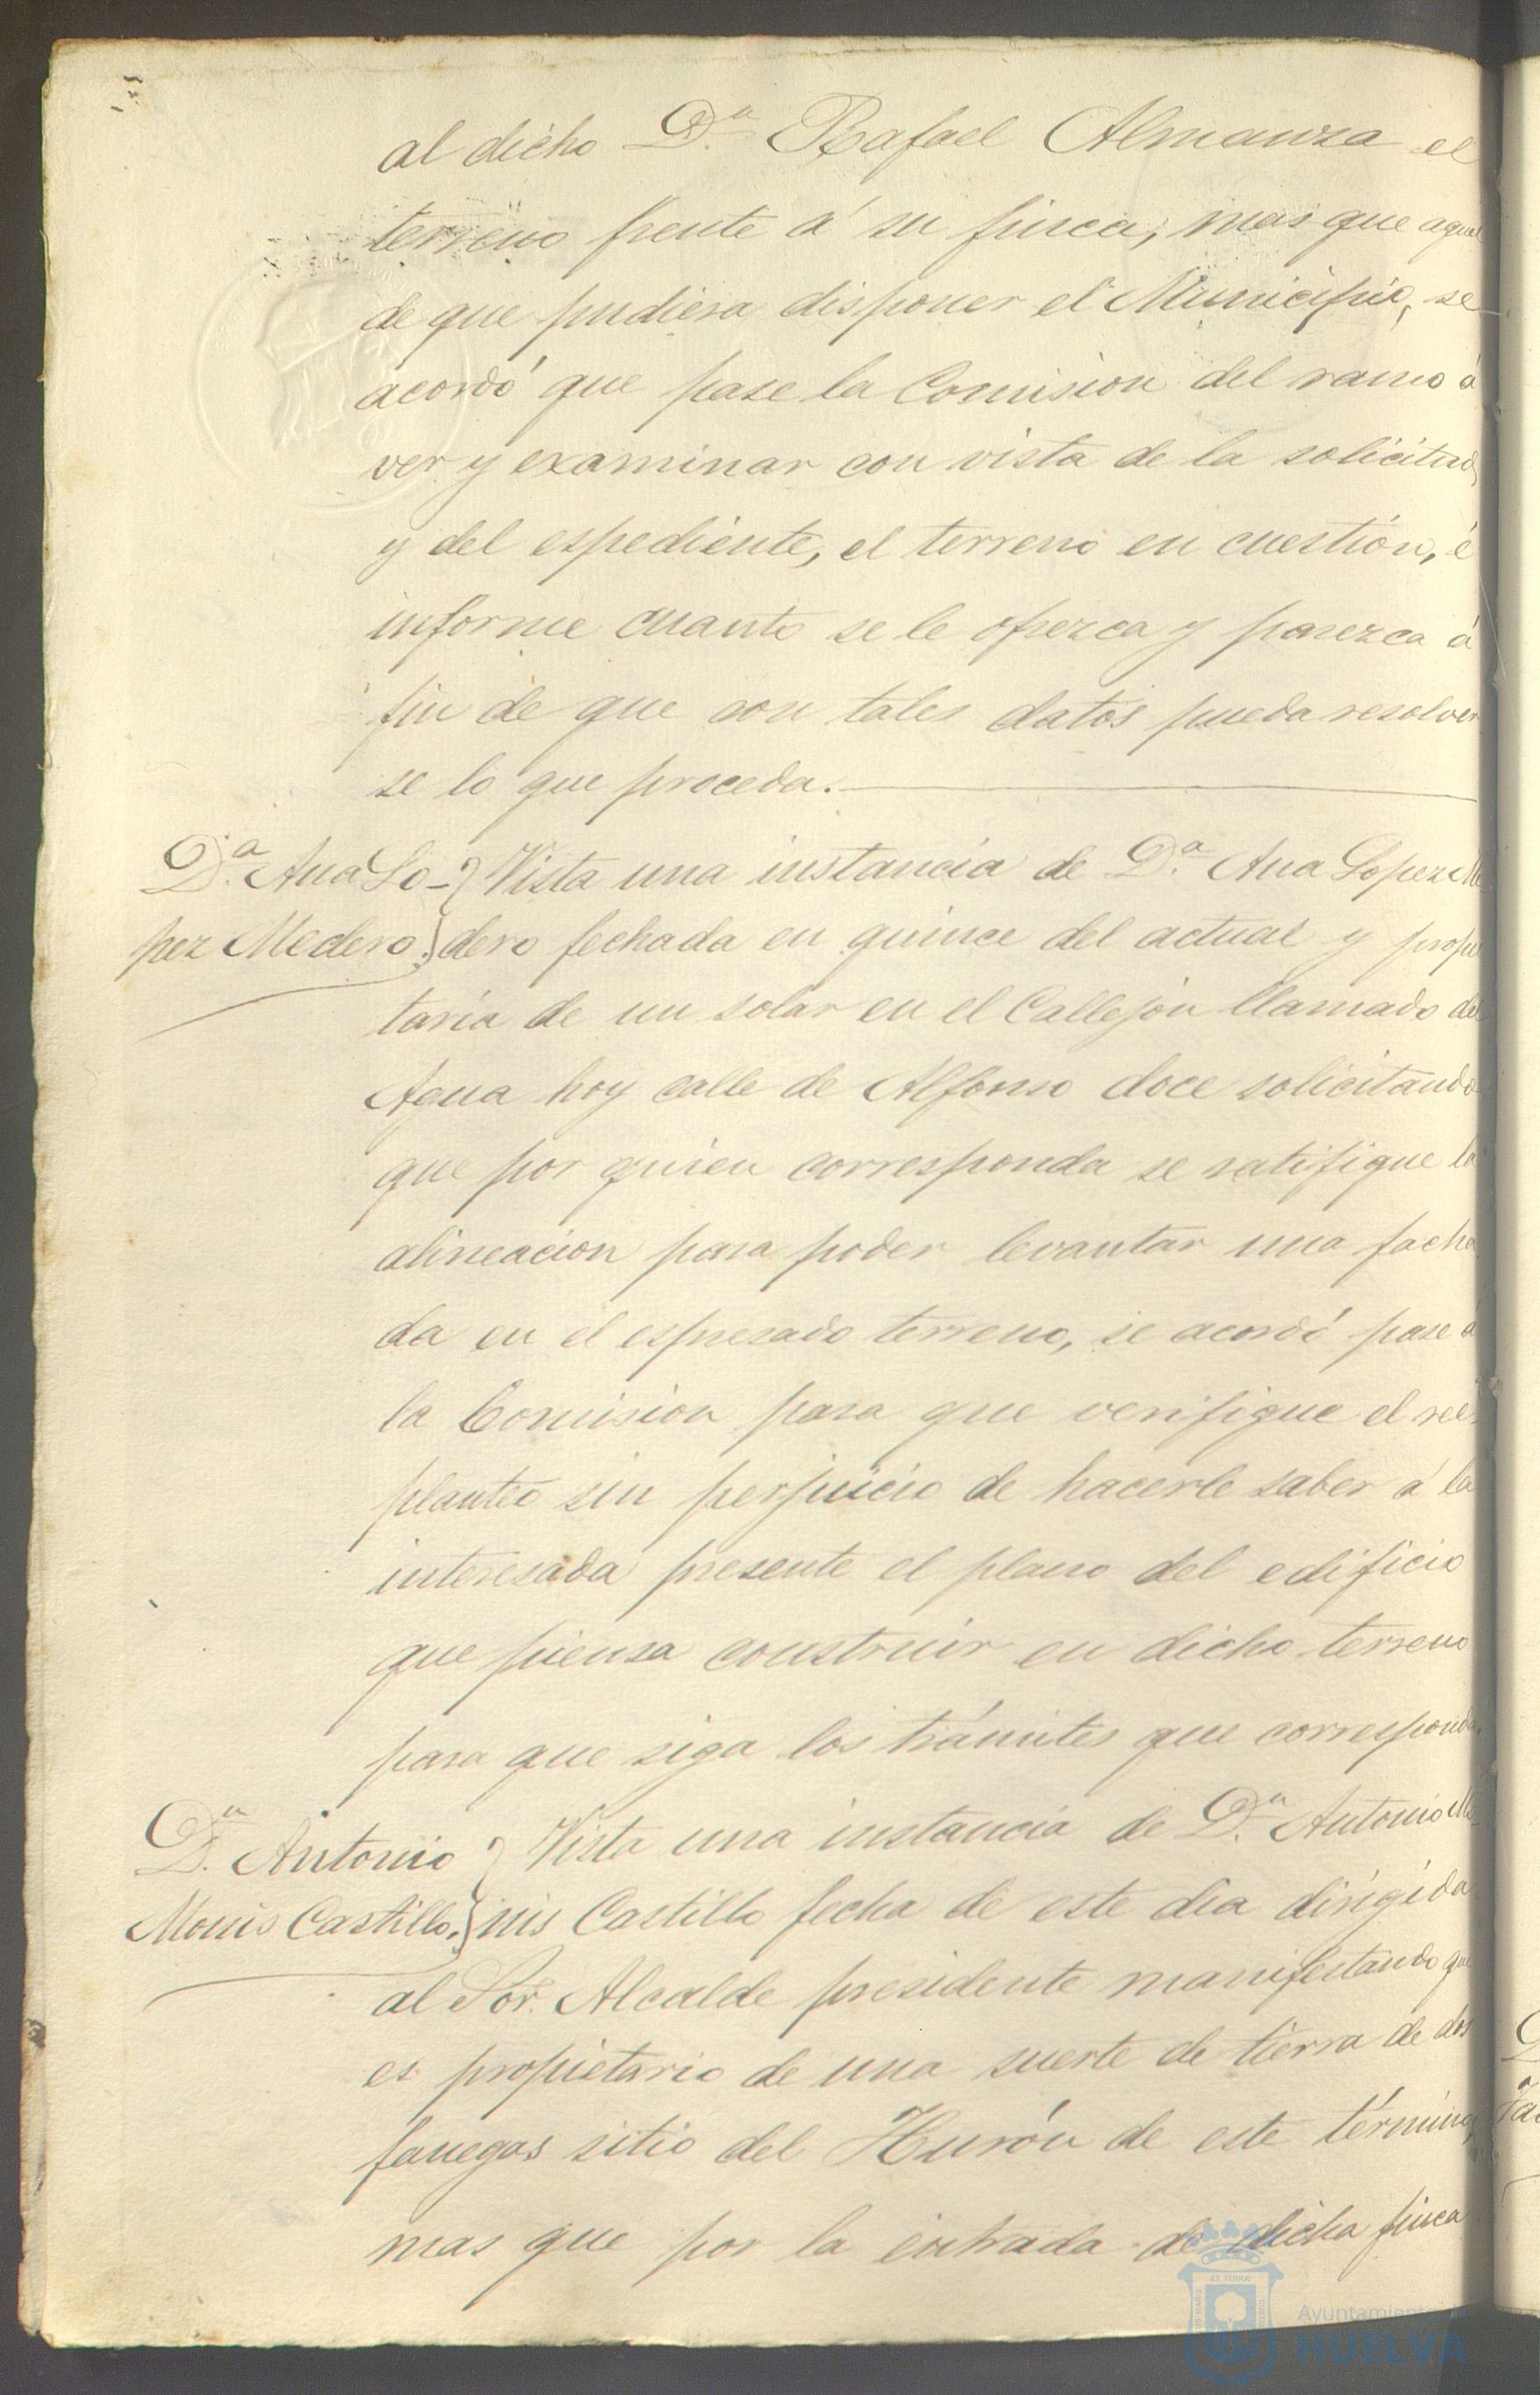 al dicho D.n Rafael Almanza el
terreno frente á su finca, mas que aquel
de que pudiera disponer el Municipio, se
acordó que pase la Comision del ramo á
ver y examinar con vista de la solicitud,
y del espediente, el terreno en cuestión, é
informe cuanto se le ofrezca y parezca á
fin de que con tales datos pueda resolver
se lo que proceda.
D.a Ana Lo-
pez Medero.
Vista una instancia de D.a Ana Lopez Me
dero fechada en quince del actual y propie
taria de un solar en el Callejón llamado del
Agua hoy calle de Alfonso doce solicitando
que por quien corresponda se ratifique la
alineacion para poder levantar una facha
da en el espresado terreno, se acordó pase á
la Comision para que verifique el ree
planteo sin perjuicio de hacerle saber á la
interesada presente el plano del edificio
que piensa construir en dicho terreno
para que siga los trámites que corresponda.
D.n Antonio
Monis Castillo.
Vista una instancia de D.n Antonio Mo
nis Castillo fecha de este dia dirigida
al Sor. Alcalde presidente manifestando que
es propietario de una suerte de tierra de dos
fanegas sitio del Hurón de este término,
mas que por la entrada de dicha finca
Ayuntamiento
HUELVA